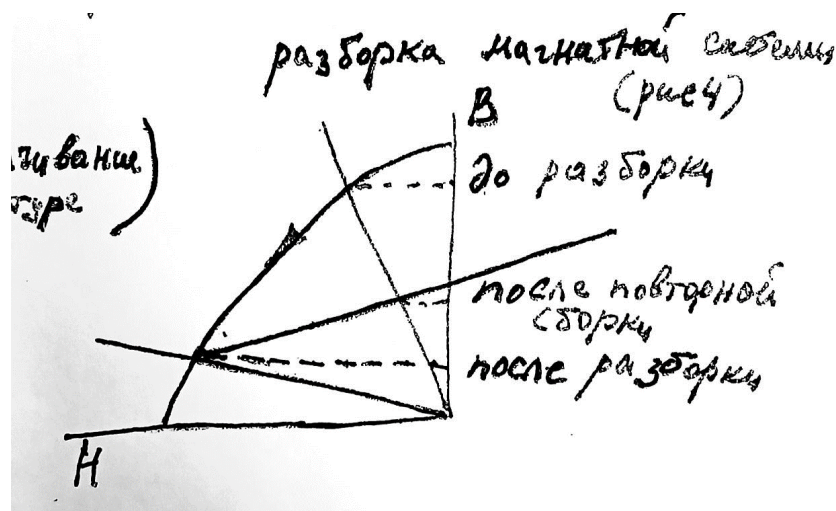 разборка магнатной системы
(рис 4)
В
до разборки
после повторной
сборки
после разборки
Н